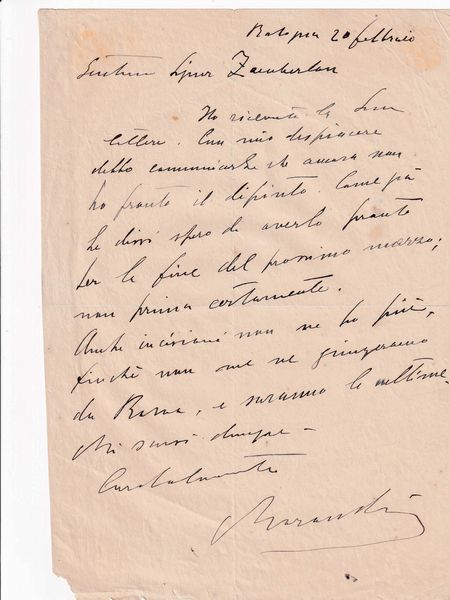 Bologna 20 febbraio
Gentile Signor Zamberlan
Ho ricevuto la Sua
lettera. Con mio dispiacere
debbo comunicarle che ancora non
ho pronto il dipinto. Come già
le dissi spero di averlo pronto
per la fine del prossimo marzo;
non prima certamente.
Anche incisioni non ne ho più,
finché non me ne giungeranno
da Roma, e saranno le ultime.
Mi scusi dunque -
Cordialmente
Morandi